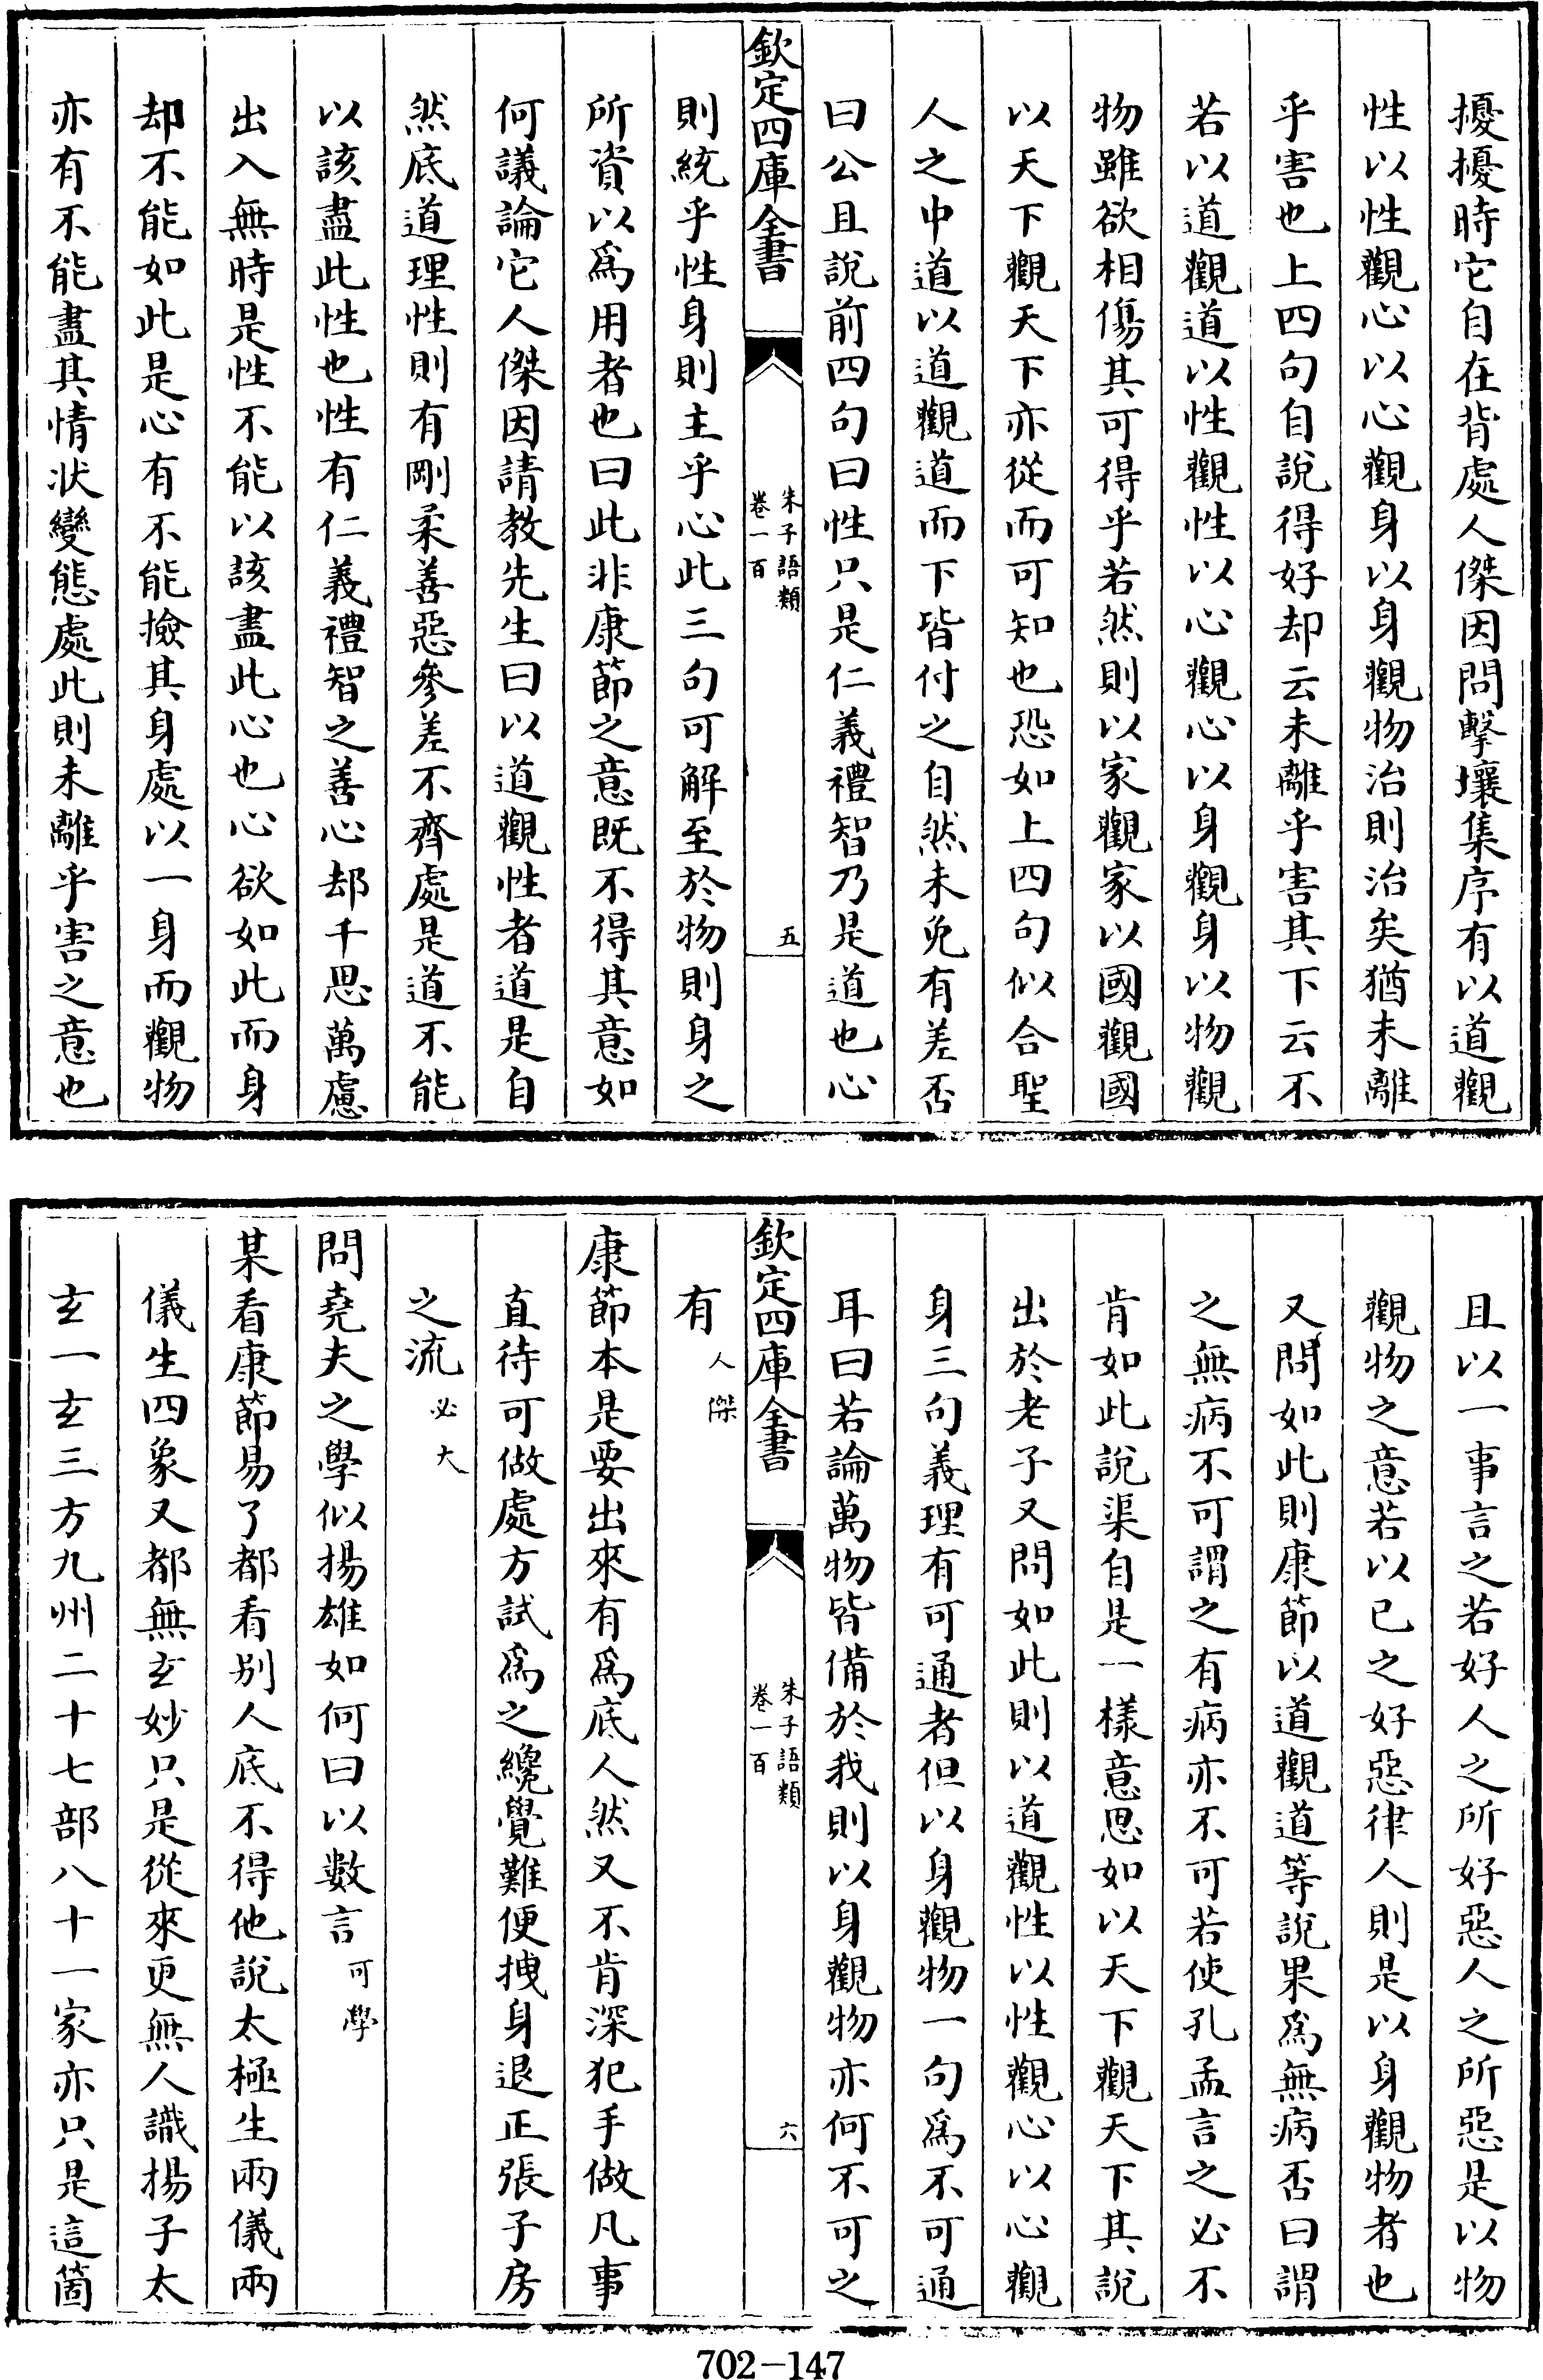 擾擾時它自在背處人傑因問擊壤集序有以道觀
性以性觀心以心觀身以身觀物治則治矣猶未離
乎害也上四句自說得好却云未離乎害其下云不
若以道觀道以性觀性以心觀心以身觀身以物觀
物雖欲相傷其可得乎若然則以家觀家以國觀國
以天下觀天下亦從而可知也恐如上四句似合聖
人之中道以道觀道而下皆付之自然未免有差否
曰公且說前四句曰性只是仁義禮智乃是道也心
欽定四庫全書
朱子語類
卷一百
五
則統乎性身則主乎心此三句可解至於物則身之
所資以為用者也曰此非康節之意既不得其意如
何議論它人傑因請教先生曰以道觀性者道是自
然底道理性則有剛柔善惡參差不齊處是道不能
以該盡此性也性有仁義禮智之善心却千思萬慮
出入無時是性不能以該盡此心也心欲如此而身
却不能如此是心有不能撿其身處以一身而觀物
亦有不能盡其情状變態處此則未離乎害之意也
且以一事言之若好人之所好惡人之所惡是以物
觀物之意若以已之好惡律人則是以身觀物者也
又問如此則康節以道觀道等說果為無病否曰謂
之無病不可謂之有病亦不可若使孔孟言之必不
肯如此說渠自是一樣意思如以天下觀天下其說
出於老子又問如此則以道觀性以性觀心以心觀
身三句義理有可通者但以身觀物一句為不可通
耳曰若論萬物皆備於我則以身觀物亦何不可之
欽定四庫全書
朱子語類
卷一百
六
有人傑
康節本是要出來有為底人然又不肯深犯手做凡事
直待可做處方試為之纔覺難便拽身退正張子房
之流必大
問堯夫之學似揚雄如何曰以數言可學
某看康節易了都看别人底不得他說太極生兩儀兩
儀生四象又都無玄妙只是從來更無人識揚子太
玄一玄三方九州二十七部八十一家亦只是這箇
702-147